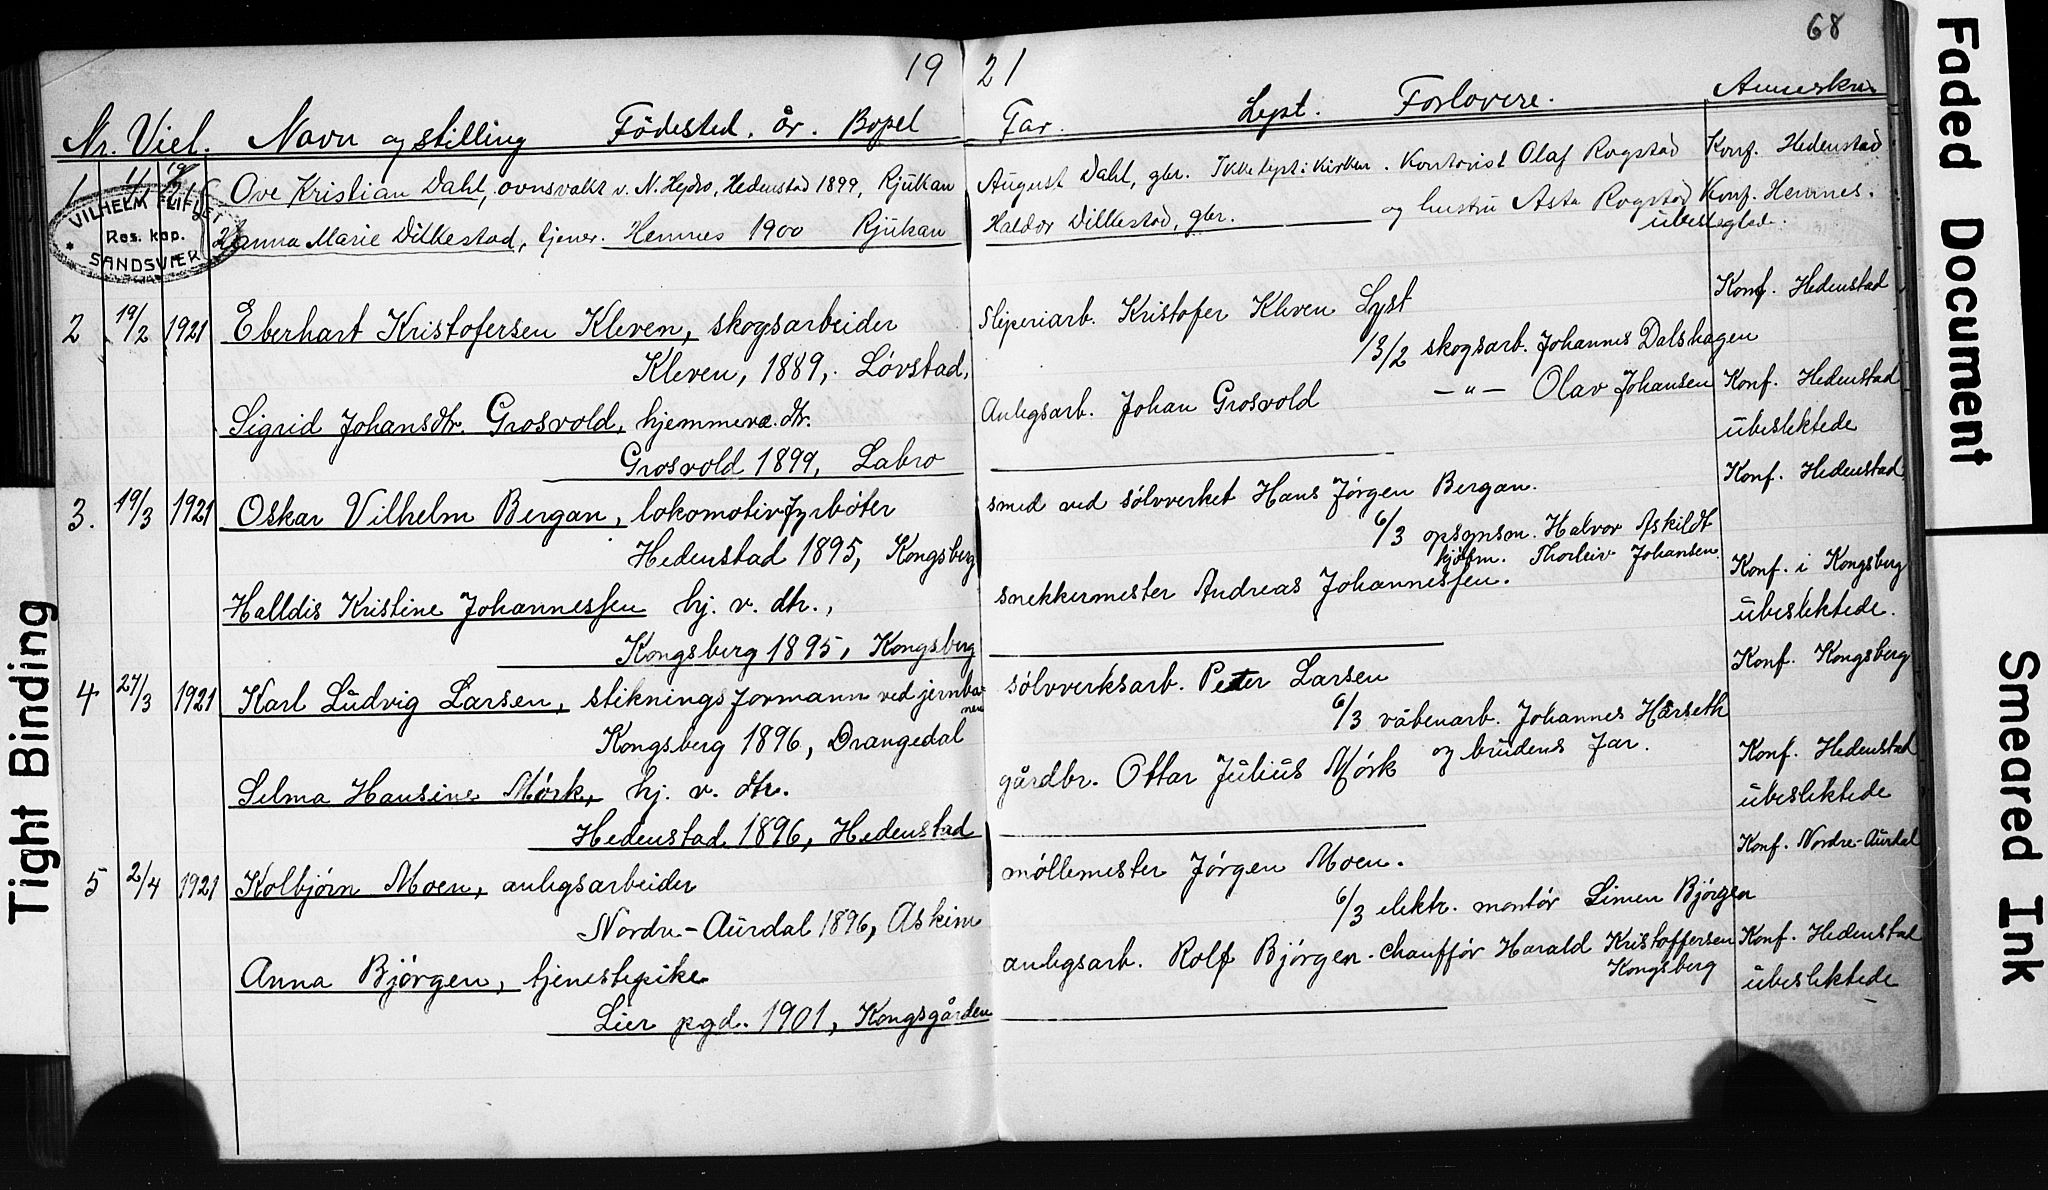 68
19 21
Nr. Viel. Navn og stilling Fødested. år. Bopel Far. Lyst. Forlovere. Anmerkn.
1 Ove Kristian Dahl, ovnsvakt v. N. Hydro, Hedenstad 1899, Rjukan August Dahl, gbr. Ikke lyst i kirken. Kontorist Olaf Rogstad Konf. Hedenstad
VILHELM
Res. kap.
SANDSVÆR
Anna Marie Dilkestad, tjener. Hemnes 1900 Rjukan Haldor Dilkestad, gbr. og hustru Asta Rogstad Konf. Hemnes.
Konf. Hedenstad
2 19/2 1921 Eberhart Kristofersen Kleven, skogsarbeider Sliperiarb. Kristofer Kleven Lyst
Kleven, 1889, Løvstad, 13/2 skogsarb. Johannes Dalshagen
Sigrid Johansdtr. Grosvold, hjemmevæ. dtr. Anlegsarb. Johan Grosvold — " — Olav Johansen Konf. Hedenstad
ubeslektede
Grosvold 1899, Labro
Konf. Hedenstad
3. 19/3 1921 Oskar Vilhelm Bergan, lokomotivfyrbøter smed ved sølvverket Hans Jørgen Bergan.
Hedenstad 1895, Kongsberg 6/3 opsynsm. Halvor Askildt
Thorleiv Johansen. Konf. i Kongsberg
Halldis Kristine Johannessen hj. v. dtr., snekkermester Andreas Johannessen. ubeslektede.
Kongsberg 1895, Kongsberg
Konf. Kongsberg
4 27/3 1921 Karl Ludvig Larsen, stikningsformann ved jernbanen sølvverksarb. Peter Larsen
Kongsberg 1896, Drangedal 6/3 våbenarb. Johannes Harseth
Selma Hansine Mørk, hj. v. dtr. gårdbr. Ottar Julius Mørk og brudens far. Konf. Hedenstad
ubeslektede
Hedenstad 1896, Hedenstad
Konf. Nordre-Aurdal
5 2/4 1921 Kolbjørn Moen, anlegsarbeider møllemester Jørgen Moen.
Nordre-Aurdal 1896, Askim 6/3 elektr. montør Simen Bjørgen
Anna Bjørgen, tjenestepike anlegsarb. Rolf Bjørgen. chauffør Harald Kristoffersen Konf. Hedenstad
Kongsberg ubeslektede
Lier pgd. 1901, Kongsgården
Faded Document
Smeared Ink
Tight Binding